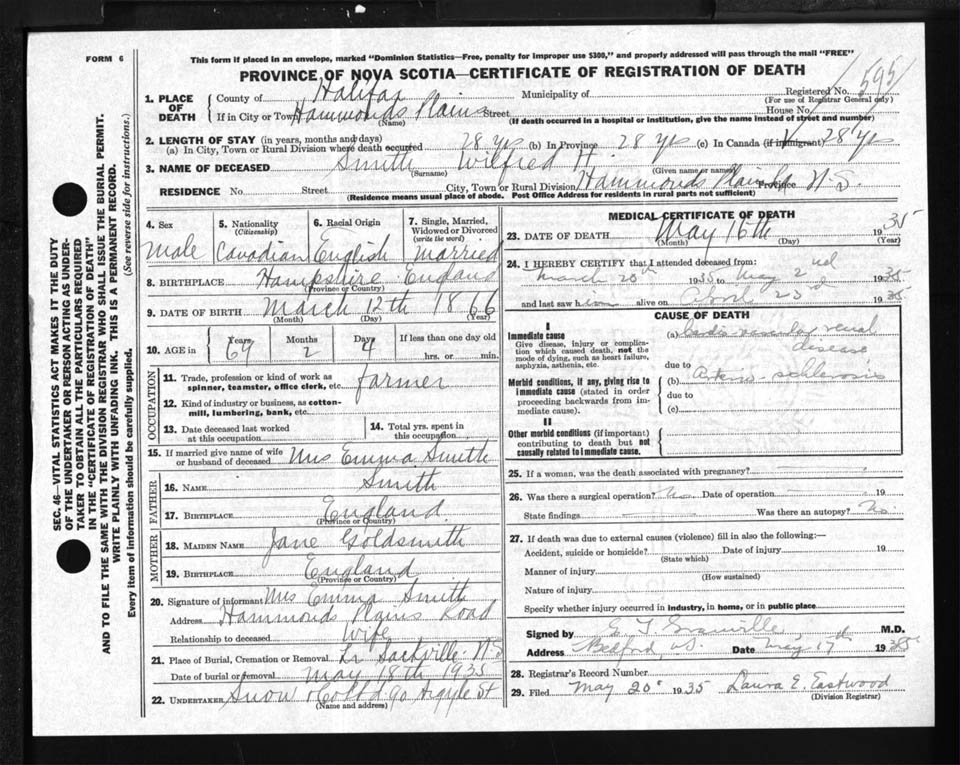 FORM 6
This form if placed in an envelope, marked "Dominion Statistics—Free, penalty for improper use $300," and properly addressed will pass through the mail "FREE"
PROVINCE OF NOVA SCOTIA—CERTIFICATE OF REGISTRATION OF DEATH
Registered No. 595
(For use of Registrar General only)
1. PLACE OF DEATH
County of Halifax Municipality of
If in City or Town Hammonds Plains Street House No.
(Name) (If death occurred in a hospital or institution, give the name instead of street and number)
2. LENGTH OF STAY (in years, months and days)
(a) In City, Town or Rural Division where death occurred 28 yrs (b) In Province 28 yrs (c) In Canada (if immigrant) 28 yrs
3. NAME OF DECEASED Smith Wilfred H.
(Surname) (Given name or names)
RESIDENCE No. Street City, Town or Rural Division Hammonds Plains Province N-S.
(Residence means usual place of abode. Post Office Address for residents in rural parts not sufficient)
SEC. 46—VITAL STATISTICS ACT MAKES IT THE DUTY
OF THE UNDERTAKER OR PERSON ACTING AS UNDER-
TAKER TO OBTAIN ALL THE PARTICULARS REQUIRED
IN THE "CERTIFICATE OF REGISTRATION OF DEATH"
AND TO FILE THE SAME WITH THE DIVISION REGISTRAR WHO SHALL ISSUE THE BURIAL PERMIT.
WRITE PLAINLY WITH UNFADING INK. THIS IS A PERMANENT RECORD.
Every item of information should be carefully supplied. (See reverse side for instructions.)
4. Sex 5. Nationality (Citizenship) 6. Racial Origin 7. Single, Married, Widowed or Divorced (write the word)
Male Canadian English Married
8. BIRTHPLACE Hampshire England
(Province or Country)
9. DATE OF BIRTH March 12th 1866
(Month) (Day) (Year)
10. AGE in Years Months Days If less than one day old
69 2 4 hrs. or min.
OCCUPATION
11. Trade, profession or kind of work as spinner, teamster, office clerk, etc. farmer
12. Kind of industry or business, as cotton-mill, lumbering, bank, etc.
13. Date deceased last worked at this occupation
14. Total yrs. spent in this occupation
15. If married give name of wife or husband of deceased Mrs Emma Smith
FATHER
16. NAME Smith
17. BIRTHPLACE England
(Province or Country)
MOTHER
18. MAIDEN NAME Jane Goldsmith
19. BIRTHPLACE England
(Province or Country)
20. Signature of informant Mrs Emma Smith
Address Hammonds Plains Road
Relationship to deceased Wife
21. Place of Burial, Cremation or Removal Lr Sackville N-S
Date of burial or removal May 18th 1935
22. UNDERTAKER Snow & Co Ltd 90 Argyle St
(Name and address)
MEDICAL CERTIFICATE OF DEATH
23. DATE OF DEATH May 16th 1935
(Month) (Day) (Year)
24. I HEREBY CERTIFY that I attended deceased from:
March 20th 1935 to May 2nd 1935
and last saw him alive on April 23rd 1935
CAUSE OF DEATH
I
Immediate cause
Give disease, injury or complication which caused death, not the mode of dying, such as heart failure, asphyxia, asthenia, etc.
(a) Cardio-vascular renal disease
due to
Morbid conditions, if any, giving rise to immediate cause (stated in order proceeding backwards from immediate cause).
(b) Arterio-schlerosis
due to
(c)
II
Other morbid conditions (if important) contributing to death but not causally related to immediate cause.
25. If a woman, was the death associated with pregnancy?
26. Was there a surgical operation? No Date of operation 19
State findings Was there an autopsy? No
27. If death was due to external causes (violence) fill in also the following:—
Accident, suicide or homicide? Date of injury 19
(State which)
Manner of injury
(How sustained)
Nature of injury
Specify whether injury occurred in industry, in home, or in public place
Signed by M.D.
Address Bedford, N.S. Date May 17th 1935
28. Registrar's Record Number
29. Filed May 20th 1935 Laura E. Eastwood
(Division Registrar)